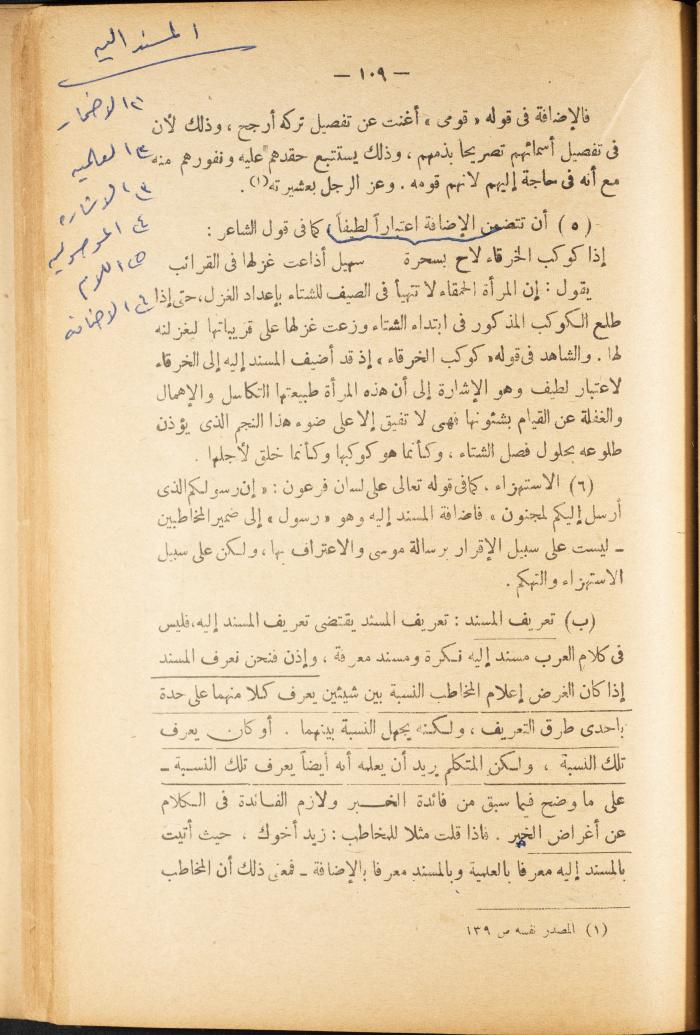 المسند اليه
١) الاضمار
٢) العالميه
٣) الاشاره
٤) الموصوليه
٥) اللام
٦) الاضافه
— ١٠٩ —
فالإضافة فى قوله « قومى » أغنت عن تفصيل تركه أرجح ، وذلك لأن
فى تفصيل أسمائهم تصريحا بذمهم ، وذلك يستتبع حقدهم عليه ونفورهم منه
مع أنه فى حاجة إليهم لأنهم قومه . وعز الرجل بعشيرته (١) .
(٥) أن تتضمن الإضافة اعتباراً لطيفاً ، كما فى قول الشاعر :
إذا كوكب الخرقاء لاح بسحرة سهيل أذاعت غزلها فى القرائب
يقول : إن المرأة الحمقاء لا تتهيأ فى الصيف للشتاء بإعداد الغزل ، حتى إذا
طلع الكوكب المذكور فى ابتداء الشتاء وزعت غزلها على قريباتها ليغزلنه
لها . والشاهد فى قوله « كوكب الخرقاء » إذ قد أضيف المسند إليه إلى الخرقاء
لاعتبار لطيف وهو الإشارة إلى أن هذه المرأة طبيعتها التكاسل والإهمال
والغفلة عن القيام بشئونها فهى لا تفيق إلا على ضوء هذا النجم الذى يؤذن
طلوعه بحلول فصل الشتاء ، وكأنما هو كوكبها وكأنما خلق لأجلها .
(٦) الاستهزاء . كما فى قوله تعالى على لسان فرعون : « إن رسولكم الذى
أرسل إليكم لمجنون » فإضافة المسند إليه وهو « رسول » إلى ضمير المخاطبين
ـ ليست على سبيل الإقرار برسالة موسى والاعتراف بها ، ولكن على سبيل
الاستهزاء والتهكم .
(ب) تعريف المسند : تعريف المسند يقتضى تعريف المسند إليه ، فليس
فى كلام العرب مسند إليه نكرة ومسند معرفة ، وإذن فنحن نعرف المسند
إذا كان الغرض إعلام المخاطب النسبة بين شيئين يعرف كلا منهما على حدة
بإحدى طرق التعريف ، ولكنه يجهل النسبة بينهما . أو كان يعرف
تلك النسبة ، ولكن المتكلم يريد أن يعلمه أنه أيضاً يعرف تلك النسبة ـ
على ما وضح فيما سبق من فائدة الخبر ولازم الفائدة فى الكلام
عن أغراض الخبر . فاذا قلت مثلا للمخاطب : زيد أخوك ، حيث أتيت
بالمسند إليه معرفا بالعلمية وبالمسند معرفا بالإضافة ـ فمعنى ذلك أن المخاطب
(١) المصدر نفسه ص ١٣٩